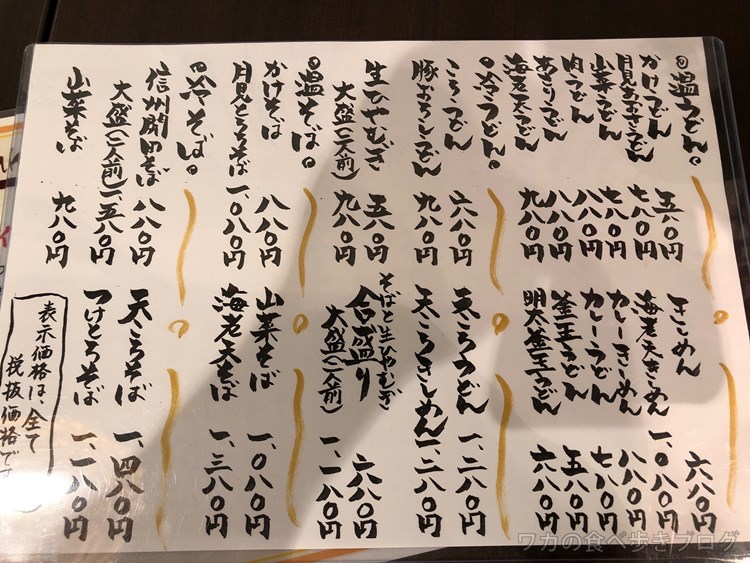 温うどん。
かけうどん 五八〇円
月見あおさうどん 七八〇円
山菜うどん 七八〇円
肉うどん 八八〇円
あさりうどん 八八〇円
海老天うどん 九八〇円
きしめん 六八〇円
海老天きしめん 一、〇八〇円
カレーきしめん 八八〇円
カレーうどん 七八〇円
釜玉うどん 五八〇円
明太釜玉うどん 六八〇円
冷うどん。
ころうどん 六八〇円
豚おろしうどん 九八〇円
天ころうどん 一、二八〇円
天ころきしめん 一、二八〇円
生ひやむぎ 五八〇円
大盛(二人前) 九八〇円
そばと生ひやむぎ
合盛り 六八〇円
大盛(二人前) 一、一八〇円
温そば。
かけそば 八八〇円
月見とろろそば 一、〇八〇円
山菜そば 一、〇八〇円
海老天そば 一、三八〇円
冷そば。
信州開田そば 八八〇円
大盛(二人前) 一、五八〇円
山菜そば 九八〇円
天ころそば 一、四八〇円
つけとろそば 一、一八〇円
表示価格は、全て
税抜価格です
ワカの食べ歩きブログ